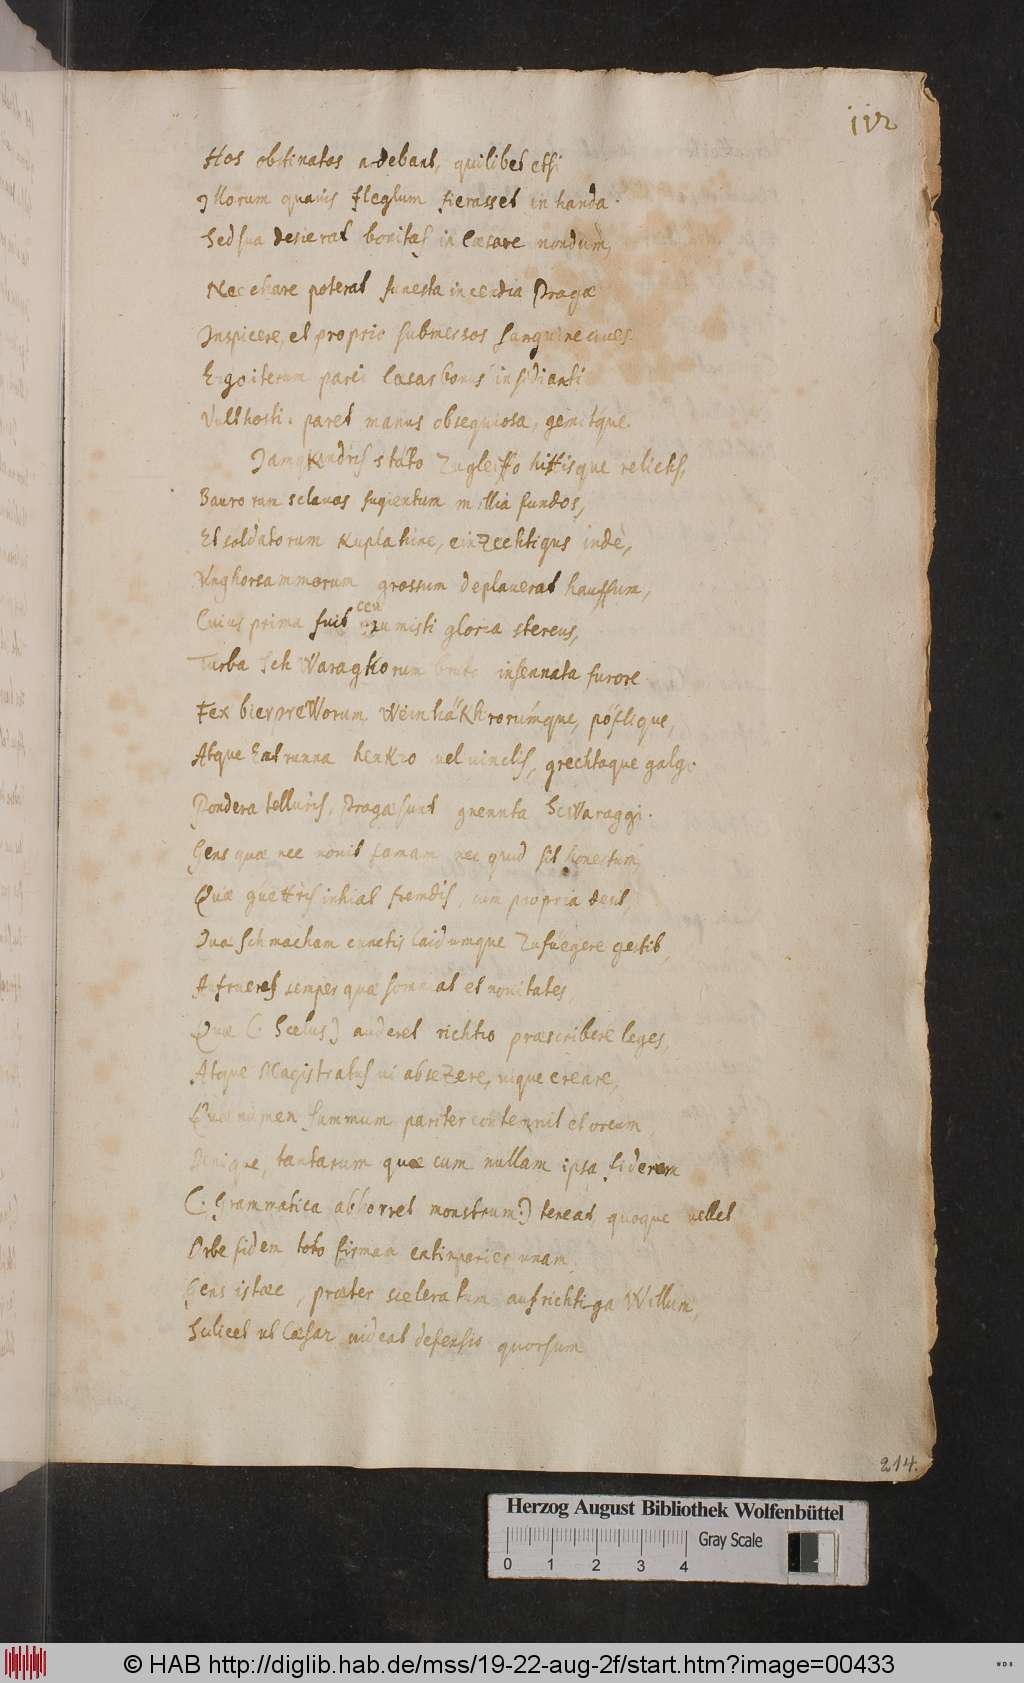 112
Hos obstinatos adebant, quilibet etsi
Illorum quauis fleglum fierasset in handa.
Sed sua desierat bonitas in Cæsare nondum,
Nec chare poterat funesta incendia Pragæ
Inspicere, et proprio submersos sanguine ciues.
Ergo iterum parci Cæsar bonus insidianti
Vult hosti. paret manus obsequiosa, gemitque.
Iamq Kindris zugleiffo hittisque relictis,
Baurorum sclauos fugientum millia fundos,
Et soldatorum Kuplatine, einzechtiqus indè,
Vnghorsammorum grossum deplauerat hauffum,
Cuius prima fuit ceu misti gloria stercus,
Turba Schwaragkorum bruto insennata furore
Fex bierprewWorum Weinhäkhrorumque, pöflique,
Atque Entrunna henkro vel vinclis, grechtaque galgo
Pondera telluris, Pragæ sunt gnennta Scwaraggi.
Gens quæ nec nouit famam nec quid sit honestum,
Quæ guettris inhiat fremdis, cum propria desit,
Quæ schmacham cunctis laidumque zufüegere gestit,
Aufrueras semper quæ somniat et nouitates,
Quæ (: Scelus :) auderet richtio præscribere leges,
Atque Magistratus ui absezere, uique creare,
Quæ numen summum pariter contemnit et orcum,
Denique, tantarum quæ cum nullam ipsa fiderem
(: Grammatica abhorret monstrum :) teneat, quoque uellet
Orbe fidem toto firmam extinguier unam.
Gens istæc, præter sceleratum aufrichtiga Willum,
Scilicet ut Cæsar uideat defensio quorsum
214.
Herzog August Bibliothek Wolfenbüttel
0 1 2 3 4 Gray Scale
© HAB http://diglib.hab.de/mss/19-22-aug-2f/start.htm?image=00433